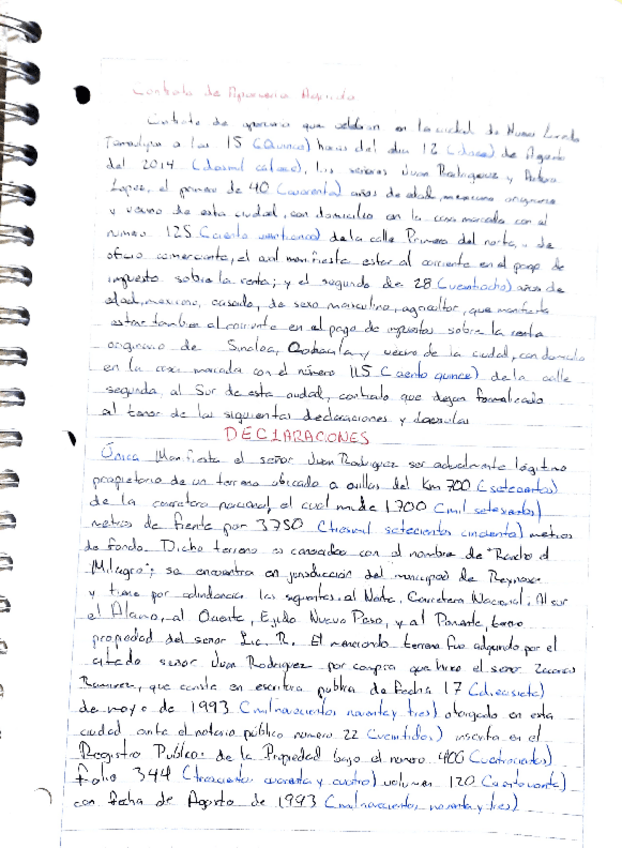 Contrato de Aparceria Agricola
Contrato de aparceria que celebran en la ciudad de Nuevo Laredo
Tamaulipas a las 15 (Quince) horas del dia 12 (doce) de Agosto
del 2014 (dosmil catorce), los señores Juan Rodriguez y Arturo
Lopez, el primero de 40 (cuarenta) años de edad, mexicano originario
y vecino de esta ciudad, con domicilio en la casa marcada con el
numero 125 (ciento veinticinco) de la calle Primera del norte, de
oficio comerciante, el cual manifiesta estar al corriente en el pago de
impuesto sobre la renta; y el segundo de 28 (veintiocho) años de
edad, mexicano, casado, de sexo masculino, agricultor, que manifiesta
estar tambien al corriente en el pago de impuestos sobre la renta
originario de Sinaloa, y vecino de la ciudad, con domicilio
en la casa marcada con el número 115 (ciento quince) de la calle
segunda al Sur de esta ciudad, contrato que dejan formalizado
al tenor de las siguientes declaraciones y
DECLARACIONES
Única Manifiesta el señor Juan Rodriguez ser actualmente lógitimo
propietario de un terreno ubicado a orillas del Km 700 (setecientos)
de la carretera nacional, el cual mide 1700 (mil setecientos)
metros de frente por 3750 (tresmil setecientos cincuenta) metros
de fondo. Dicho terreno es conocido con el nombre de "Rancho el
Milagro"; se encuentra en jurisdicción del municipio de Reynosa
y tiene por colindancias las siguientes, al Norte, Carretera Nacional, Al sur
el Alamo, al Oriente, Ejido Nuevo Paso, y al Ponente, terreno
propiedad del señor Lic. R. El mencionado terreno fue adquirido por el
citado señor Juan Rodriguez por compra que hizo el señor Zacarias
Ramirez, que consta en escritura publica de fecha 17 (diecisiete)
de mayo de 1993 (milnovecientos noventa y tres) otorgado en esta
ciudad ante el notario público numero 22 (veintidos) inscrita en el
Registro Publico de la Propiedad bajo el numero 400 (cuatrocientos)
folio 344 (trescientos cuarenta y cuatro) volumen 120 (cientoveinte)
con fecha de Agosto de 1993 (milnovecientos noventa y tres)